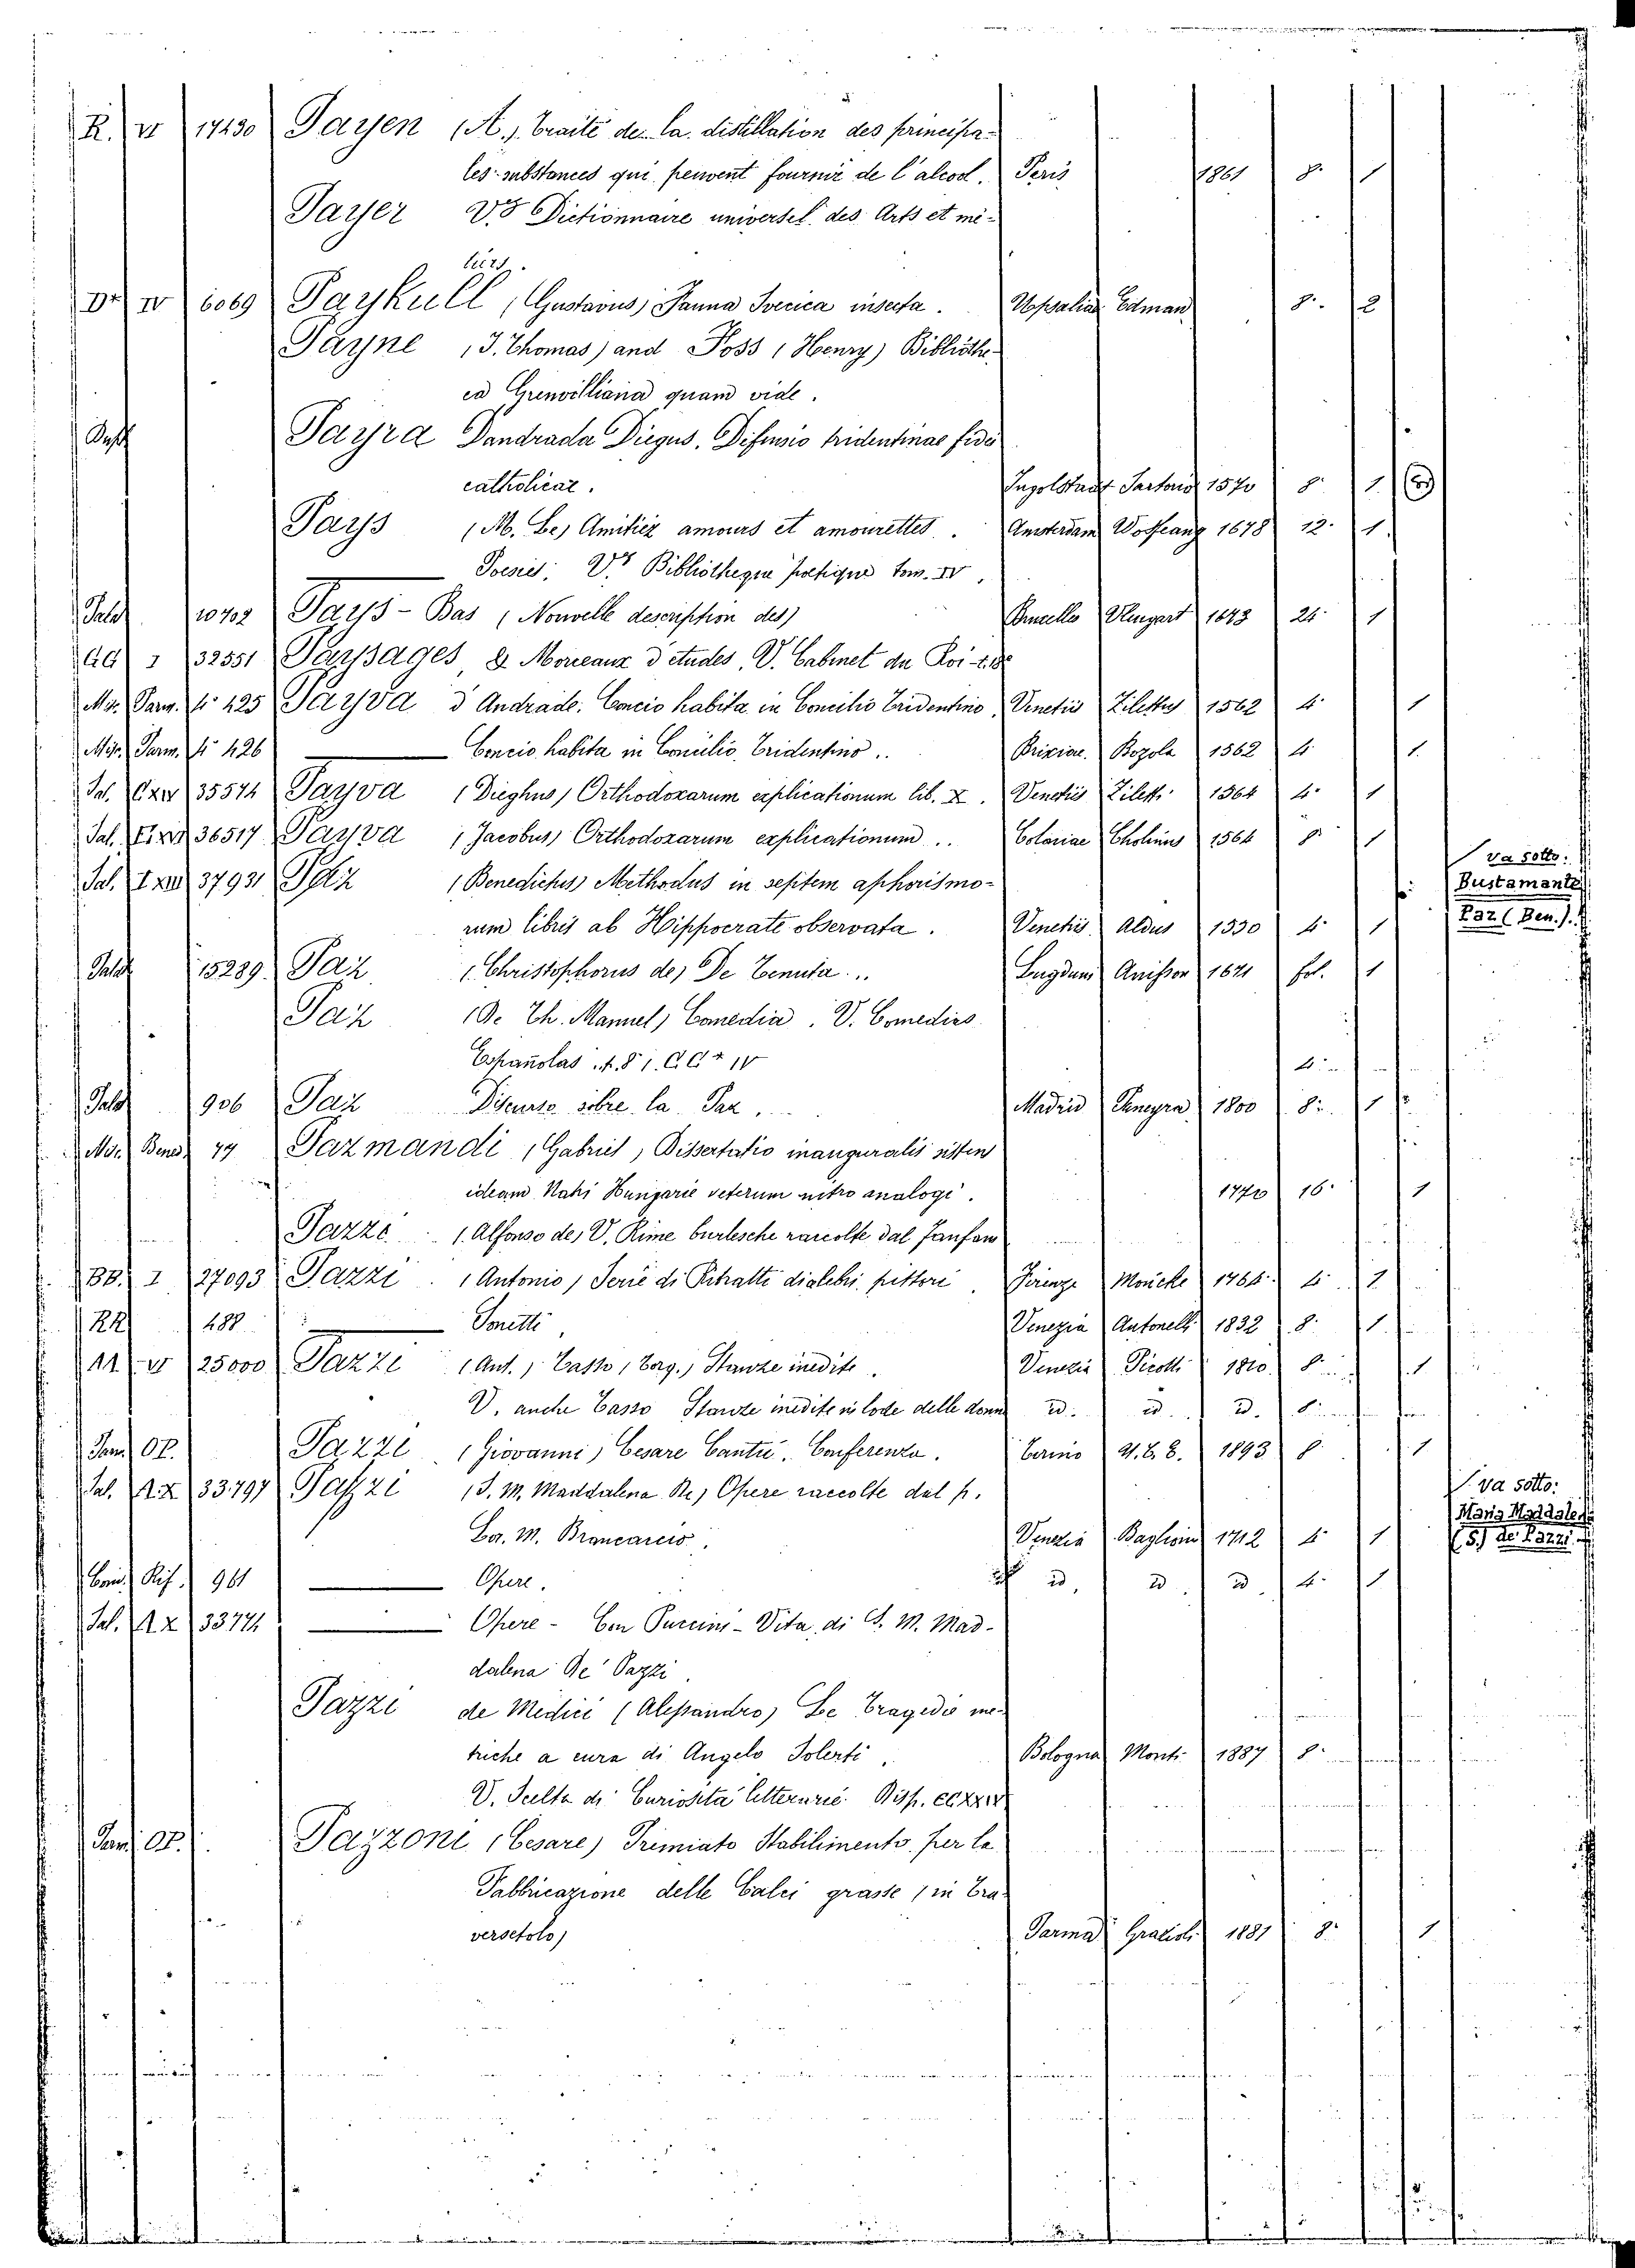 R. VI 17430 Payen (A.) Traité de la distillation des principa-
les substances qui peuvent fournir de l'alcool. Paris 1861 8.° 1
Payer V.s Dictionnaire universel des Arts et mé-
tiers.
D* IV 6069 Paykull (Gustavus) Fauna Svecica insecta. Upsaliae Edman 8.° 2
Payne (J. Thomas) and Foss (Henry) Bibliothe-
ca Grenvilliana quam vide.
Payra Dandrada Diegus. Defensio tridentinae fidei
catholicae. Ingolstadt Sartorio 1570 8.° 1.
Pays (M. Le) Amitiez amours et amourettes. Amsterdam Wolfgang 1678 12.° 1.
Poesies. V.s Bibliotheque poetique tom. IV.
Palat 10702 Pays-Bas (Nouvelle description des) Bruxelles Vleugart 1673 24.° 1
GG I 32551 Paysages & Morceaux d'etudes. V. Cabinet du Roi
Mis. Parm. f.° 425 Payva d'Andrade. Concio habita in Concilio Tridentino. Venetiis Zilettus 1562 4.° 1
Mis. Parm. f.° 426 Concio habita in Concilio Tridentino.. Brixiae. Bozola 1562 4.° 1.
Sal. 35574 Payva (Dieghus) Orthodoxarum explicationum lib. X. Venetiis Zilett. 1564 4.° 1
Sal. 36517 Payva (Jacobus) Orthodoxarum explicationum .. Coloniae Cholinus 1564 8.° 1
Sal. 37931 Paz (Benedictus) Methodus in septem aphorismo-
va sotto:
Bustamante
Paz (Ben.).
rum libris ab Hippocrate observata. Venetiis Aldus 1550 4.° 1
Palat 15289. Paz (Christophorus de) De Tenuta ... Lugduni Anisson 1671 fol. 1
Paz (D. Th. Manuel) Comedia. V. Comedias
Españolas
4.°
Palat 906 Paz Discurso sobre la Paz. Madrid 1800 8.° 1
Mis. Bened. 77 Pazmandi (Gabriel) Dissertatio inauguralis sistens
ideam Natri Hungarie veterum nitro analogi. 1770 16.° 1
Pazzi (Alfonso de) V. Rime burlesche raccolte dal Fanfani
BB. I 27093 Pazzi (Antonio) Serie di Ritratti di celebri pittori Firenze Moücke 1764 4.° 2
RR 488 Sonetti Venezia Antonelli 1832 8.° 1.
25000 Pazzi (Ant.) Tasso (Torq.) Stanze inedite. Venezia Picotti 1810. 8.° 1
V. anche Tasso Stanze inedite in lode delle donne id. id. id. 8.°
Parm. OP. Pazzi (Giovanni) Cesare Cantù. Conferenza. Torino 1893 8.° 1
Sal. 33797 Pazzi (S. M. Maddalena De) Opere raccolte dal p.
va sotto:
Maria Maddalena
(S.) de Pazzi
Lor. M. Brancaccio. Venezia Baglioni 1712 4.° 1
961 Opere. id. id. id. 4.° 1
Sal. 33774 Opere - Con Puccini - Vita di S. M. Mad-
dalena De' Pazzi
Pazzi de Medici (Alessandro) Le Tragedie me-
triche a cura di Angelo Solerti. Bologna Monti 1887 8.°
V. Scelta di Curiosità letterarie. Disp. CCXXIV
Parm. OP. Pazzoni (Cesare) Premiato Stabilimento per la
Fabbricazione delle Calci grasse (in Tra-
versetolo) Parma Grazioli 1881 8.° 1